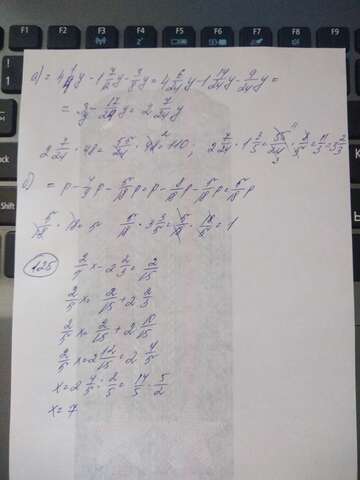 F1 F2 F3 F4 F5 F6 F7 F8 F9 F10
а) = 4 1/4 y - 1 7/12 y - 3/8 y = 4 6/24 y - 1 14/24 y - 9/24 y =
= 2 7/24 y
2 7/24 · 48 = 55/24 · 48 = 110; 2 7/24 · 1 3/5 = 55/24 · 8/5 = 11/3 = 3 2/3
б) = p - 4/9 p - 5/18 p = p - 8/18 p - 5/18 p = 5/18 p
5/18 · 18 = 5 5/18 · 3 3/5 = 5/18 · 18/5 = 1
125 2/5 x - 2 2/3 = 2/15
2/5 x = 2/15 + 2 2/3
2/5 x = 2/15 + 2 10/15
2/5 x = 2 12/15 = 2 4/5
x = 2 4/5 : 2/5 = 14/5 · 5/2
x = 7